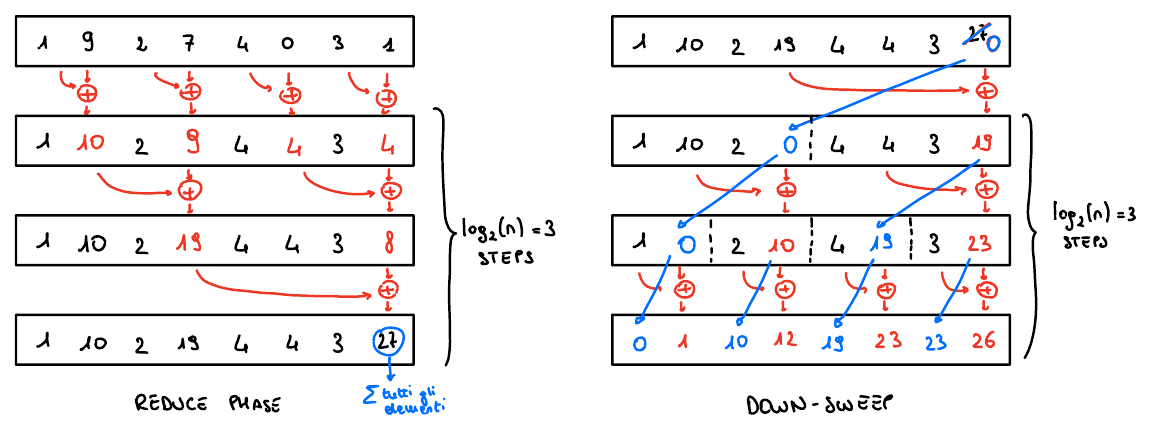 1 9 2 7 4 0 3 1
+ + + +
1 10 2 9 4 4 3 4
+ +
1 10 2 19 4 4 3 8
+
1 10 2 19 4 4 3 27
log₂(n) = 3
STEPS
Σ tutti gli
elementi
REDUCE PHASE
1 10 2 19 4 4 3 27 0
+
1 10 2 0 4 4 3 19
+ +
1 0 2 10 4 19 3 23
+ + + +
0 1 10 12 19 23 23 26
log₂(n) = 3
STEPS
DOWN-SWEEP